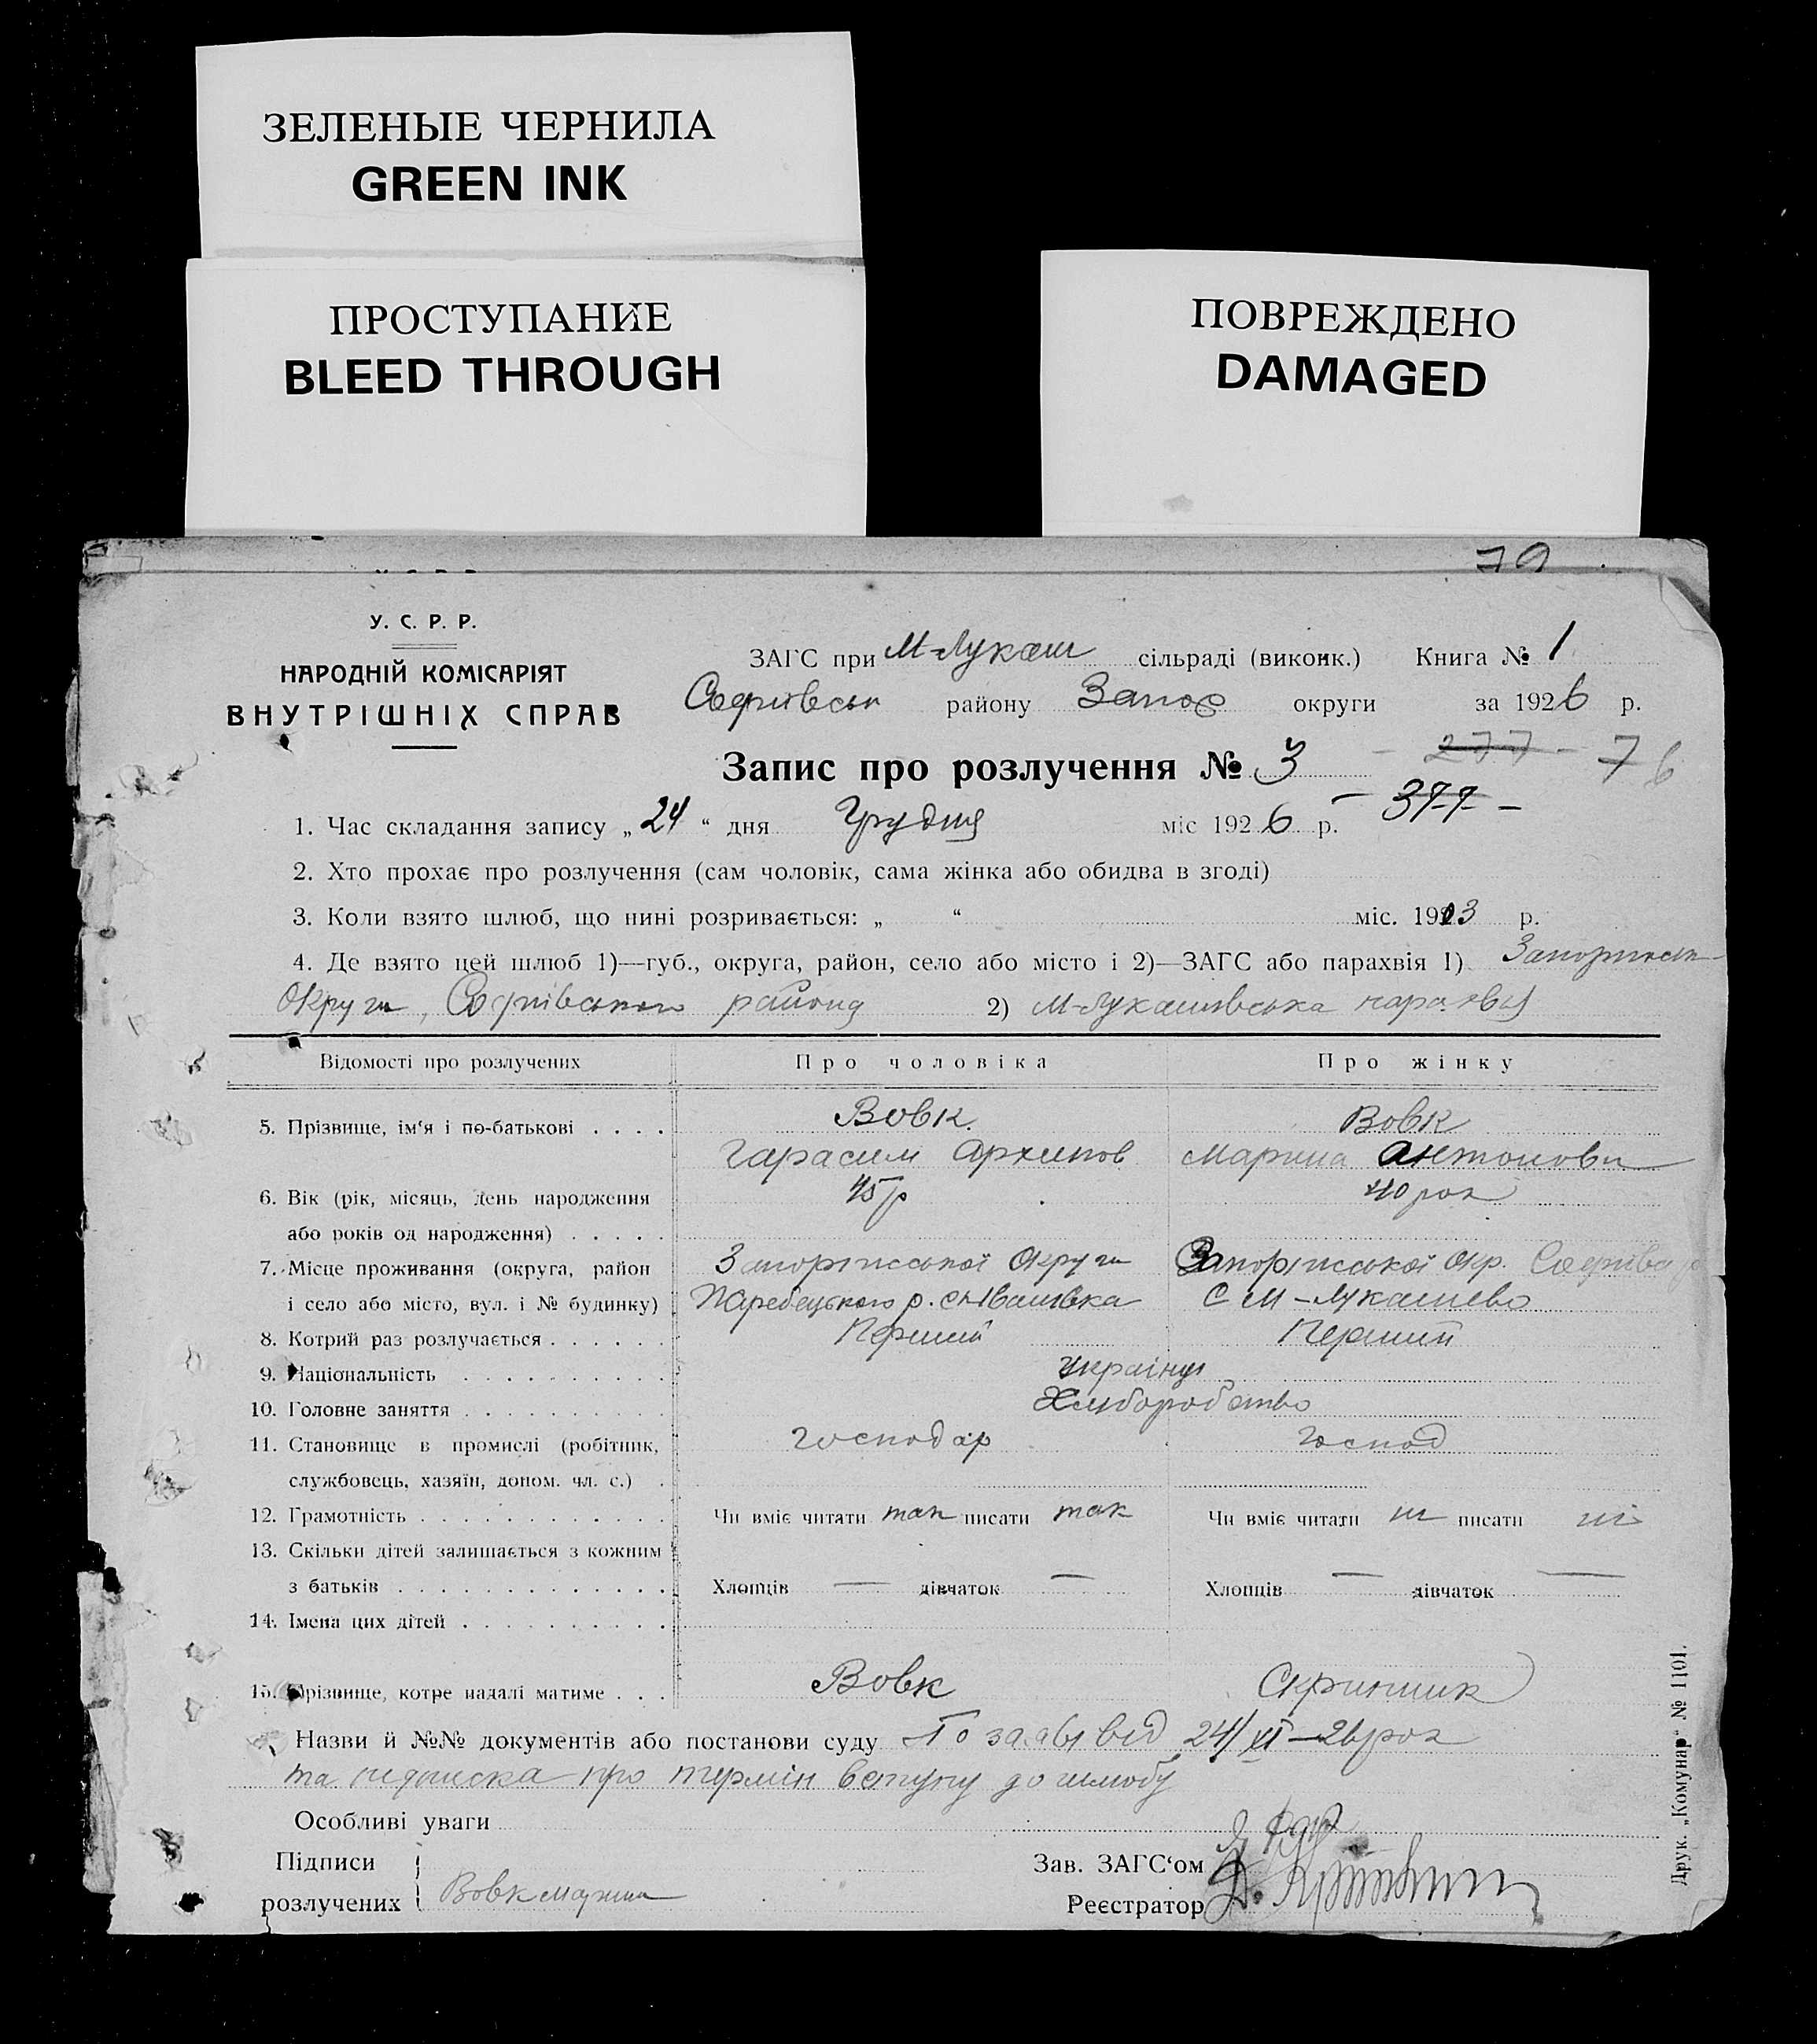 ЗЕЛЕНЫЕ ЧЕРНИЛА
GREEN INK
ПРОСТУПАНИЕ
BLEED THROUGH
ПОВРЕЖДЕНО
DAMAGED
79
У. С. Р. Р.
НАРОДНІЙ КОМІСАРІЯТ
ВНУТРІШНІХ СПРАВ
ЗАГС при М-Лукаш сільраді (виконк.) Книга № 1
Софиївськ району Запор округи за 1926 р.
Запис про розлучення № 3 - 277 - 76
- 377 -
1. Час складання запису „24“ дня Грудня міс 1926 р.
2. Хто прохає про розлучення (сам чоловік, сама жінка або обидва в згоді)
3. Коли взято шлюб, що нині розривається: „ “ міс. 1913 р.
4. Де взято цей шлюб 1)—губ., округа, район, село або місто і 2)—ЗАГС або парахвія 1)
Округи, Софиївського району 2) М-Лукашивська парахвія
Відомості про розлучених Про чоловіка Про жінку
5. Прізвище, ім'я і по-батькові . . . . Вовк. Вовк
Гарасим Архипов Марина Антонови
6. Вік (рік, місяць, день народження 45 р 40 рок
або років од народження) . . . . .
7. Місце проживання (округа, район Запоріжської Округи Запоріжської окр.
і село або місто, вул. і № будинку) р. с. Івашівка С М-Лукашево
8. Котрий раз розлучається . . . . . . Перший Перший
9. Національність . . . . . . . . . . українці
10. Головне заняття . . . . . . . . . . Хліборобство
11. Становище в промислі (робітник, господар господ
службовець, хазяїн, допом. чл. с.) .
12. Грамотність . . . . . . . . . . . . Чи вміє читати так писати так Чи вміє читати ні писати ні
13. Скільки дітей залишається з кожним
з батьків . . . . . . . . . . . . . Хлопців — дівчаток — Хлопців — дівчаток —
14. Імена цих дітей . . . . . . . . . .
15. Прізвище, котре надалі матиме . . . Вовк Скрипник
Назви й №№ документів або постанови суду По заяві від 24/XI—26 рок
та підписка про термін вступу до шлюбу
Особливі уваги
Підписи Зав. ЗАГС'ом
розлучених Вовк Марина Реєстратор
Друк. „Комунар“ № 1101.